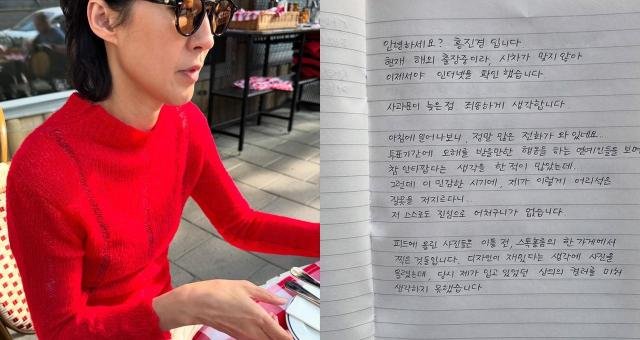 안녕하세요? 홍진경 입니다.
현재 해외 출장중이라, 시차가 맞지 않아
이제서야 인터넷을 확인 했습니다.
사과문이 늦은점 죄송하게 생각합니다
아침에 일어나보니, 정말 많은 전화가 와 있네요..
투표기간에 오해를 받을만한 행동을 하는 연예인들을 보며
참 안타깝다는 생각을 한 적이 많았는데..
그런데 이 민감한 시기에, 제가 이렇게 어리석은
잘못을 저지르다니..
저 스스로도 진심으로 어처구니가 없습니다.
피드에 올린 사진들은 이틀 전, 스톡홀름의 한 가게에서
찍은 것들입니다. 디자인이 재밌다는 생각에 사진을
올렸는데, 당시 제가 입고 있었던 상의의 컬러를 미처
생각하지 못했습니다.